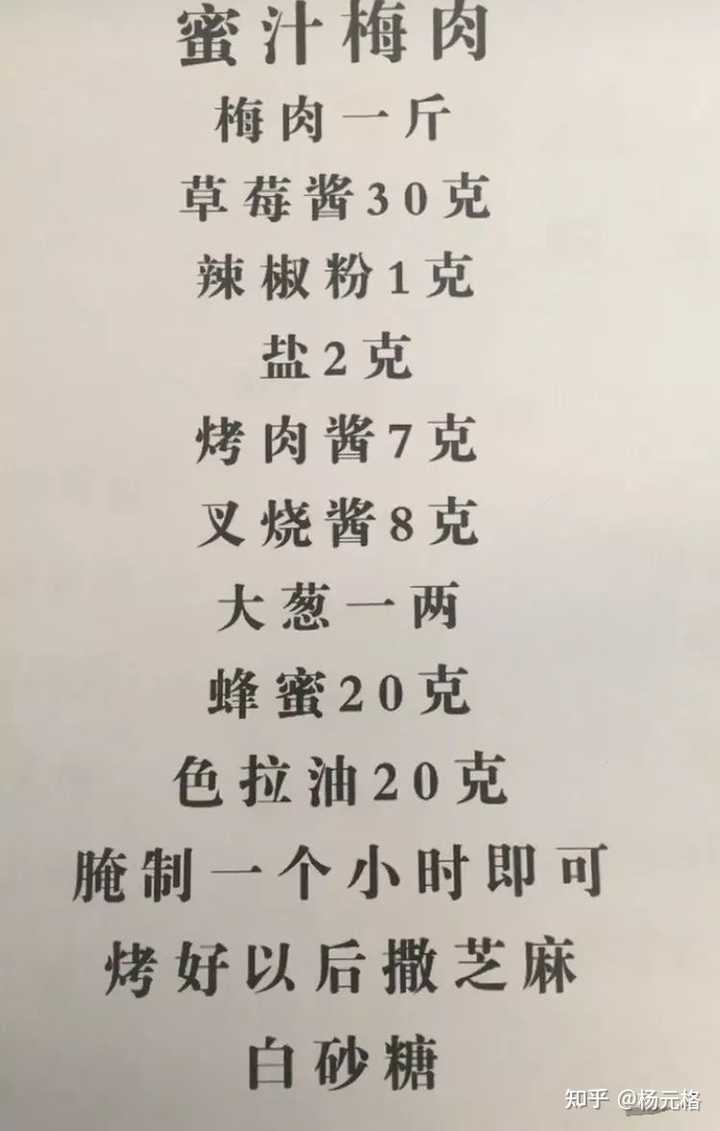 蜜汁梅肉
梅肉一斤
草莓酱30克
辣椒粉1克
盐2克
烤肉酱7克
叉烧酱8克
大葱一两
蜂蜜20克
色拉油20克
腌制一个小时即可
烤好以后撒芝麻
白砂糖
知乎 @杨元格